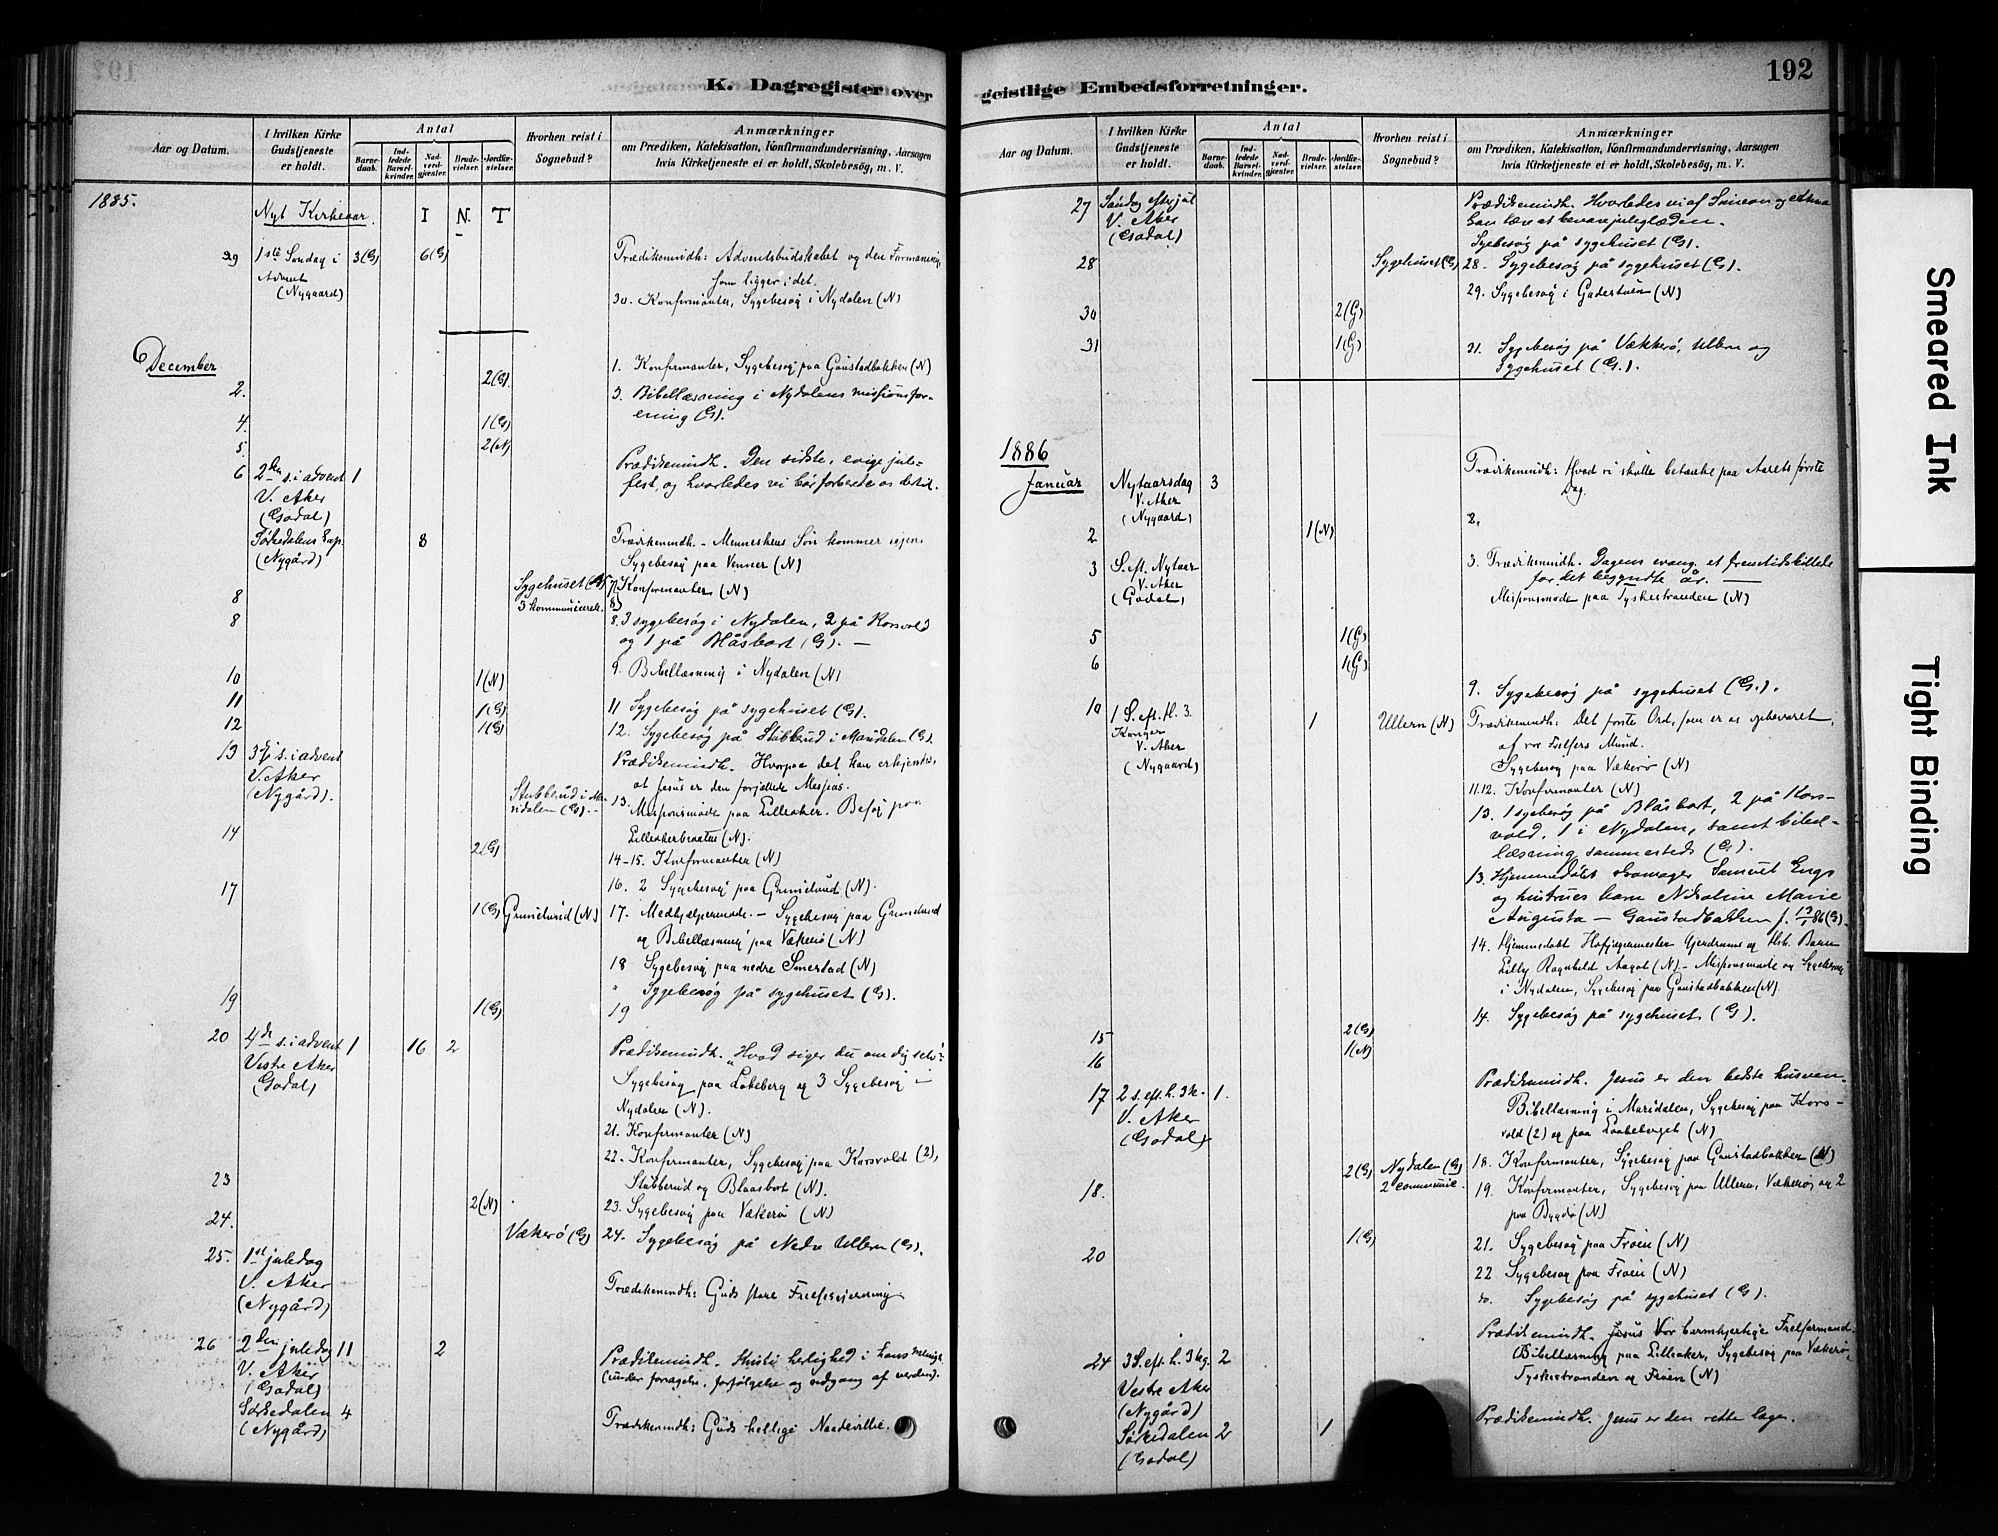 192
K. Dagregister over
Aar og Datum.
I hvilken Kirke Gudstjeneste er holdt.
Antal
Barnedaab.
Indledede Barselkvinder.
Nadverdgjæster.
Brudevielser.
Jordfæstelser.
Hvorhen reist i Sognebud?
Anmærkninger
om Prædiken, Katekisation, Konfirmandundervisning, Aarsagen
hvis Kirketjeneste ei er holdt, Skolebesøg, m. V.
1885.
Nyt Kirkeaar. I N. T
29 1ste Søndag i 3(G) 6(G) Prædikenindh: Adventsbudskabet og den
Advent som ligger i det.
(Nygaard) 30. Konfirmanter, Sygebesøg i Nydalen (N)
December
1. Konfirmanter, Sygebesøg paa Gaustadbakken (N)
2. 2(G). 3. Bibellæsning i Nydalens missionsfor-
ening (G).
4. 1(G)
5. 2(N)
6 2den s. i advent 1 Prædikenindh. Den sidste, evige jule-
V. Aker fest, og hvorledes vi bør forberede os dertil.
(Godal)
Sørkedalens Kap. 8 Prædikenindh. - Menneskens Søn kommer igjen.
(Nygård) Sygebesøg paa Venner (N)
Sygehuset 7) Konfirmanter (N)
8 3 kommunicerede. 8)
8 8. 3 sygebesøg i Nydalen, 2 på Korsvold
og 1 på Blåsbort (G). —
9. Bibellæsning i Nydalen (N)
10 1(N)
11 1(G) 11 Sygebesøg på sygehuset (G).
12 1(G) 12. Sygebesøg på Stubberud i Maridalen (G).
13 3dje s. i advent Prædikenindh. Hvorpaa det kan erkjendes,
V. Aker at Jesus er den forjættede Messias.
(Nygård). Stubberud i Ma- 13. Missionsmøde paa Lilleaker. Besøg paa
ridalen (G). Lilleakerbraaten (N).
14 2(G) 14-15. Konfirmanter (N)
16. 2 Sygebesøg paa Grimelund (N).
17 1(G) Grimelund (N) 17. Medhjælpermøde. - Sygebesøg paa Grimelund
og Bibellæsning paa Vækerø (N)
18 Sygebesøg paa nedre Smestad (N)
" Sygebesøg på sygehuset (G).
19 1(G) 19
20 4de s. i advent 1 16 2 Prædikenindh. "Hvad siger du om dig selv?
Vestre Aker Sygebesøg paa Lökeberg og 3 Sygebesøg i
(Godal) Nydalen (N).
21. Konfirmanter (N)
22. Konfirmanter, Sygebesøg paa Korsvold (2),
Stubberud og Blaasbort (N).
23 2(N) 23. Sygebesøg paa Vækerø (N)
24. Vækerö (G) 24. Sygebesøg på Nedre Ullern (G).
25. 1ste juledag
V. Aker Prædikenindh: Guds store Frelsesgjerning
(Nygård)
26 2den juledag 11 2 Prædikenindh. Kristi herlighed i hans menigh.
V. Aker (under foragelse, forfølgelse og udgang af verden).
(Godal)
Sørkedalen 4 Prædikenindh: Guds hellige Naadevillie.
(Nygård)
geistlige Embedsforretninger.
Aar og Datum.
I hvilken Kirke Gudstjeneste er holdt.
Antal
Barnedaab.
Indledede Barselkvinder.
Nadverdgjæster.
Brudevielser.
Jordfæstelser.
Hvorhen reist i Sognebud?
Anmærkninger
om Prædiken, Katekisation, Konfirmandundervisning, Aarsagen
hvis Kirketjeneste ei er holdt, Skolebesøg, m. V.
27 Søndag efter jul Prædikenindh. Hvorledes vi af Simeon og Anna
V. Aker kan lære at bevare juleglæden.
(Godal) Sygebesøg på sygehuset (G).
28 Sygehuset (G) 28. Sygebesøg på sygehuset (G).
29. Sygebesøg i (N)
30 2(G)
31 1(G) 31. Sygebesøg på Vækkerö, Ullern og
Sygehuset (G.).
1886
Januar Nytaarsdag 3 Prædikenindh: Hvad vi skulle betænke paa Aarets første
V. Aker Dag.
(Nygaard)
2 1(N) 2.
3 S. eft. Nytaar 3. Prædikenindh. Dagens evang. et fremtidsbillede
V. Aker for det begyndte år. —
(Godal) Missionsmøde paa Tyskestranden (N)
5 1(G)
6 1(G)
9. Sygebesøg på sygehuset (G.).
10 1 S. eft. H. 3. 1 Ullern (N) Prædikenindh: Det første Ord, som er os opbevaret
Konger af vor Frelsers Mund.
V. Aker Sygebesøg paa Vækerø (N)
(Nygaard)
11.12. Konfirmanter (N)
13. 1 sygebesøg på Blåsbort, 2 på Kors-
vold, 1 i Nydalen, samt bibel-
læsning sammesteds (G).
13. Hjemmedøbt skomager Samuel Engs
og hustrues barn Nikoline Marie
Augusta — Gaustadbakken f. 86 (G).
14. Hjemmedøbt Hofjægermester Gjerdrums og Hst. Barn
Lilly Ragnhild Aagot (N) - Missionsmøde og Sygebesøg
i Nydalen, Sygebesøg paa Gaustadbakken (N)
14. Sygebesøg på sygehuset (G).
15 2(G)
16 1(N)
17 2 s. eft. h. 3 k. 1. Prædikenindh. Jesus er den bedste husven.
V. Aker Bibellæsning i Maridalen, Sygebesøg paa Kors-
(Godal) vold (2) og paa Laakeberget (N)
18. 2(G) Nydalen (G) 18. Konfirmanter, Sygebesøg paa Gaustadbakken (N)
2 communic. 19. Konfirmanter, Sygebesøg paa Ullern, Vækerø og 2
paa Bygdø (N)
20 1(G) 21. Sygebesøg paa Frøen (N)
22 Sygebesøg paa Frøen (N)
Sygebesøg på sygehuset (G).
24 3 S. eft. h. 3 kg. 2 Prædikenindh. Jesus Vor barmhjertige Frelsermand.
Vestre Aker Bibellæsning paa Lilleaker, Sygebesøg paa Vækerø,
(Nygård) Tyskestranden og Frøen (N)
Sørkedalen 2 1 Prædikenindh. Jesus er den rette læge.
(Godal)
Smeared Ink
Tight Binding